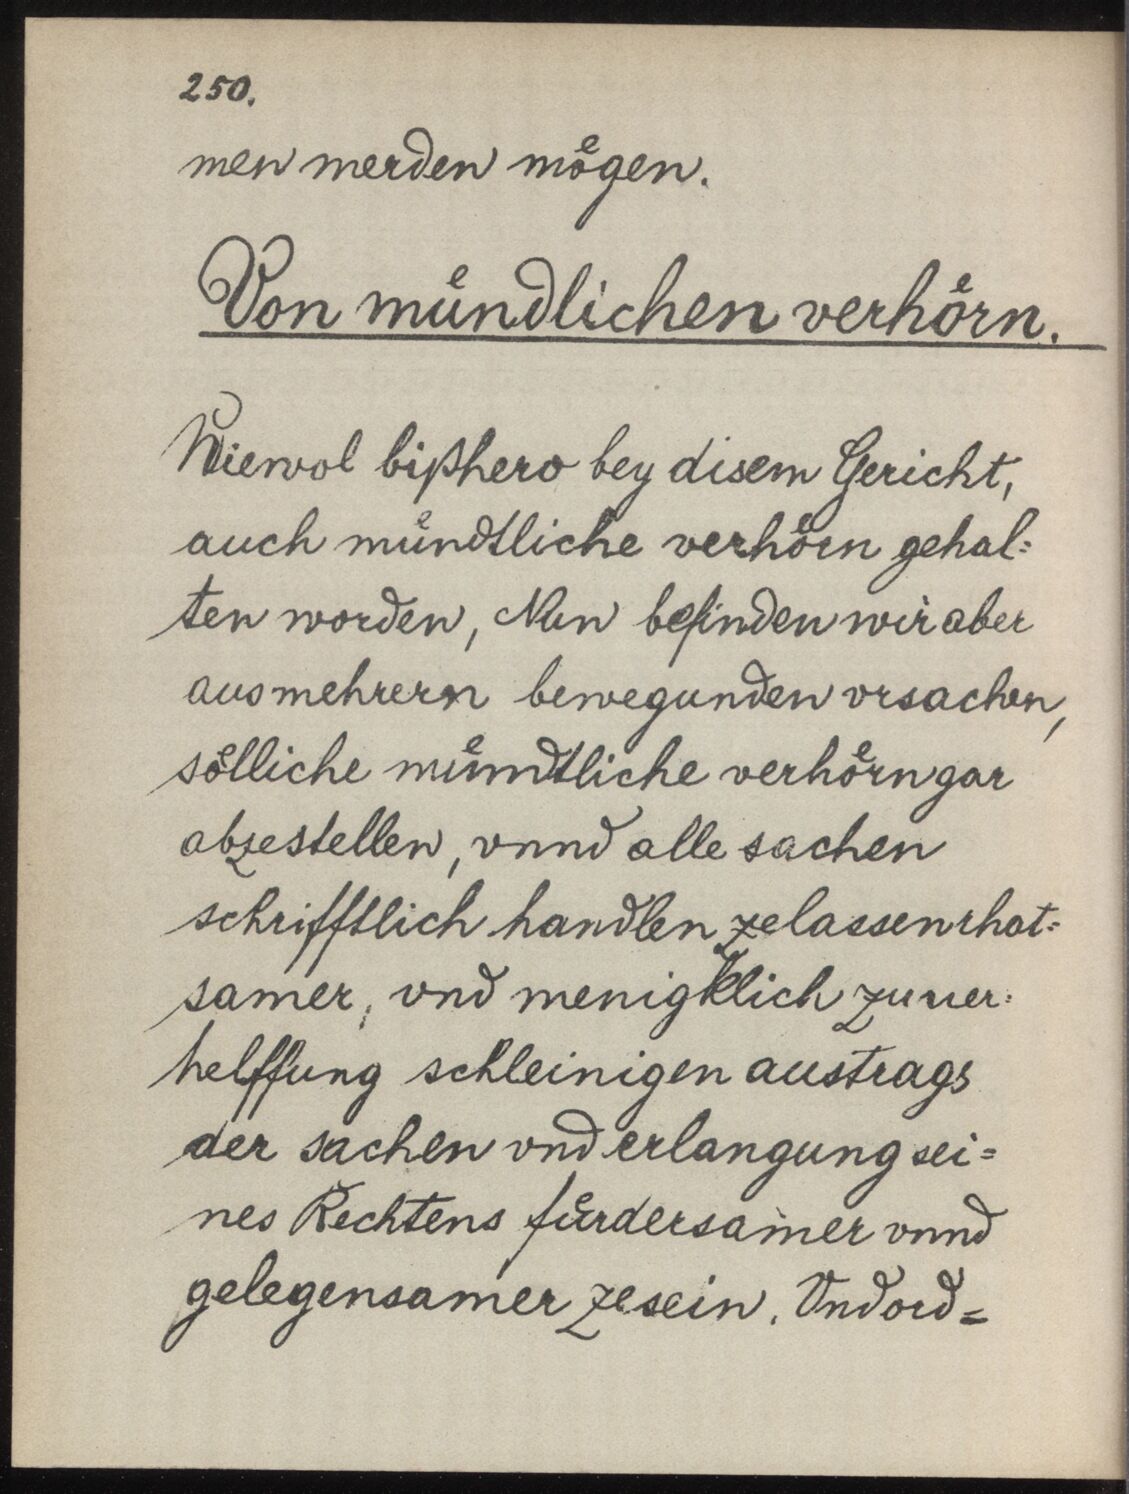 250.
men werden mo&#869;gen.
Von mu&#868;ndlichen verho&#868;rn.
Wiewol bißhero bey disem Gericht,
auch mu&#868;ndtliche verho&#868;rn gehal=
ten worden, Nun befinden wir aber
aus mehrern bewegunden vrsachen,
so&#868;lliche mu&#868;ndtliche verho&#868;rn gar
abzestellen, vnnd alle sachen
schrifftlich handlen zelassen rhat=
samer, vnd menigklich zuuer=
helffung schleinigen austrags
der sachen vnd erlangung sei=
nes Rechtens fu&#868;rdersamer vnnd
gelegensamer zesein. Vnd ord=